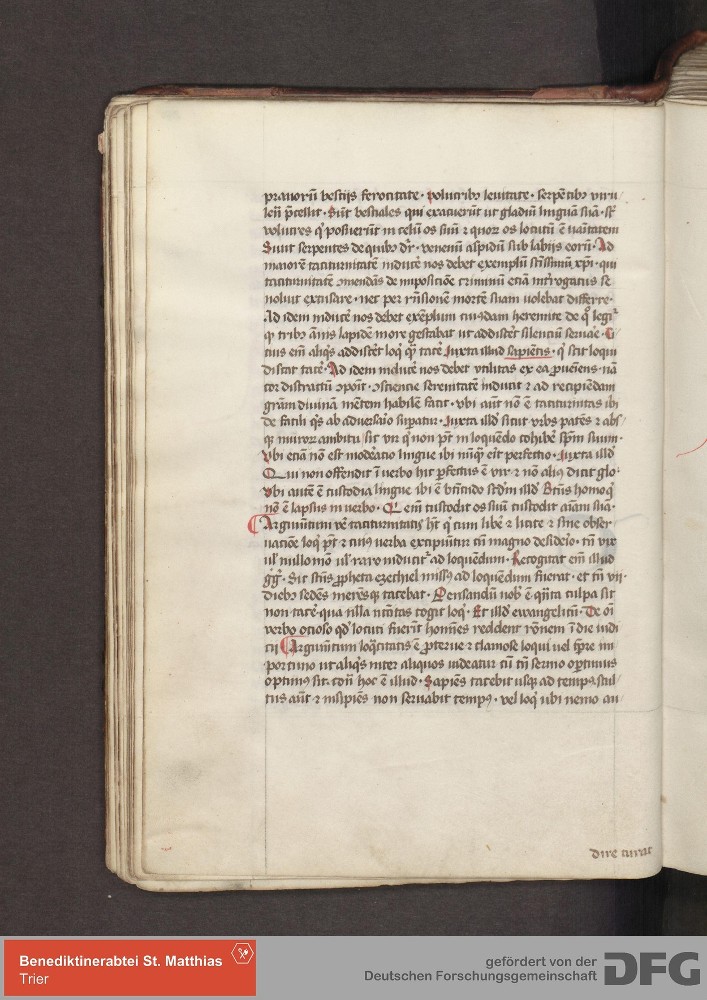 prauorū bestijs ferocitate · volucribꝫ leuitate · serpētibꝫ viru
lēti p̄cellit · Sūt bestiales qui exacuerūt ut gladiū linguā suā · sūt
volucres q̇ posuerūt in celū os suū ⁊ quor os locutū ē uanitatem
Sunt serpentes de quibꝫ dr̄ · venenū aspidū sub labijs eorū · Ad
maiorē taciturnitatē inducē nos debet exemplū sc̄issimū xp̄i · qui
taciturnitatē ꝯmendās de īmposicōne criminū etiā int̄rogatus se
noluit excusare · nec per rn̄sionē mortē suam uolebat differre ·
Ad idem inducē nos debet exēplum cuiusdam heremite de q̊ legit᷑
q̇ tribꝫ ānis lapidē in ore gestabat ut addisc̄et silenciū seruāe · C
cius em̄ aliq̇s addisc̄et loq̇ q̄ tacē Juxta illud sapiētis · q̇ scit loqui
discat tacē · Ad idem inducē nos debet vtilitas ex ea ꝓueniens · nā
cor distractū ꝯponit · ꝯsciencie serenitatē inducit ⁊ ad recipiēdam
grām diuinā mētem habilē facit · vbi aūt nō ē taciturnitas ibi
de facili q̇s ab aduersaīo suꝑatur · Juxta illd̄ sicut vrbs patēs ⁊ absꝫ
murorꝫ ambitu sit vir q̇ non pōt in loquēdo cohibē spm̄ suum ·
Vbi etiā nō est modeīacio lingue ibi nūq̄ erit perfectio · Juxta illd̄
Qui non offendit ī verbo hic ꝑfectus ē vir ⁊ nō aliꝰ dicit glo ·
Vbi autē ē custodia lingue ibi ē bt̄itudo scdm̄ illd̄ Btūs homo q̇
nō ē lapsus in uerbo · Q em̄ custodit os suū custodit aīam suā ·
Argumētum v̄e taciturnitatis hꝫ q̇ cum lib̄e ⁊ licite ⁊ sine obser
uacōne loq̇ pōt ⁊ cuiꝰ uerba excipiūtur cū magno desideīo · tn̄ vix
ul̄ nullo mō ul̄ raro inducit᷑ ad loquēdum · Recogitat em̄ illud
gg̊ · Sic sctūs ꝓpheta ezechiel missꝰ ad loquēdum fuerat · et tn̄ vij ·
diebꝫ sedēs merēsqꝫ tacebat · Pensandū nob̄ ē qn̄ta culpa sit
non tacē · qua nlla nc̄itas cogit loq̇ · Et illd̄ ewangelicū · De oī
verbo ocioso qd̓ locuti fuerīt hom̄ies reddent rōnem ī die iudi
cij Argumētum loq̇citatis ē ꝓterue ⁊ clamose loqui uel tp̄re im
portuno ut aliq̇s inter aliquos uideatur cū tn̄ sermo optimus
optimꝰ sit · con̄ hoc ē illud · Sapiēs tacebit usqꝫ ad tempꝰ · stul
tus aūt ⁊ insipiēs non seruabit tempꝰ · vel loq̇ ubi nemo au
dire curat
Benediktinerabtei St. Matthias
Trier
gefördert von der
Deutschen Forschungsgemeinschaft
DFG